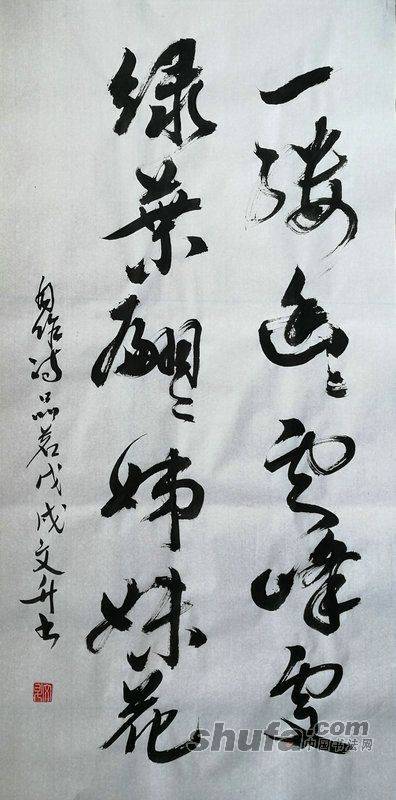 一缕幽々雲峰
绿葉翩々姊妹花
自作诗品茗戊戌文升书
shufa.com
中国书法网